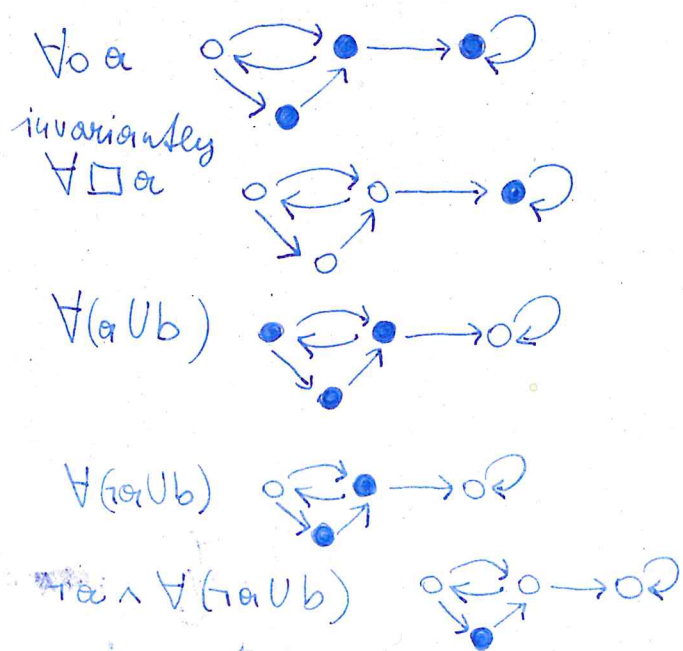 ∀○ a
invariantly
∀□ a
∀(a U b)
∀(¬a U b)
¬a ∧ ∀(¬a U b)